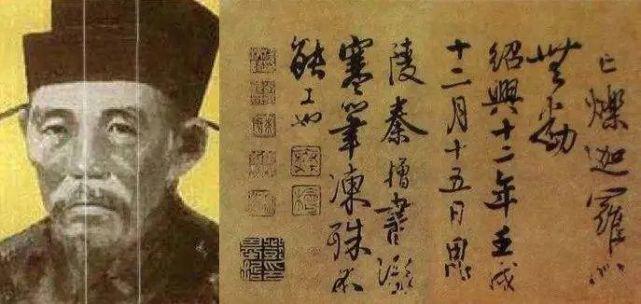 亡爍迦羅心
無動
紹興十二年壬戌
十二月十五日
陵秦檜書
寒筆凍殊不
能工也